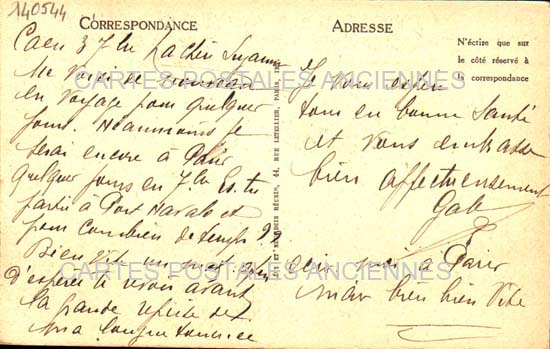 140544
CORRESPONDANCE
ADRESSE
N'écrire que sur
le côté réservé à
la correspondance
CARTES POSTALES ANCIENNES
CARTES POSTALES ANCIENNES
Caen 3 7bre Ma Chère Suzanne
Me voici de nouveau
en voyage pour quelques
jours. Néanmoins je
serai encore à Paris
quelques jours en 7bre Es-tu
partie à Port Navalo et
pour combien de temps ??
Bien vite un mot
d'espère te revoir avant
la grande reprise de
ma longue tournée
44, RUE LETELLIER, PARIS
Je vous espère
tous en bonne santé
et vous embrasse
bien affectueusement
Gab
à Paris
mais bien bien vite